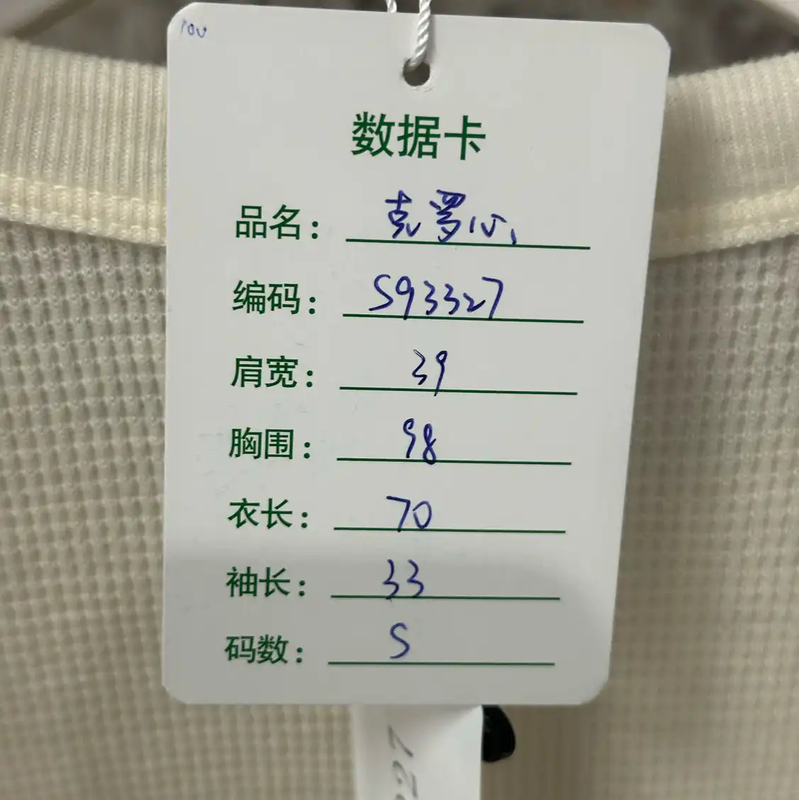 rou
数据卡
品名：克罗心
编码：S93327
肩宽：39
胸围：98
衣长：70
袖长：33
码数：S
327